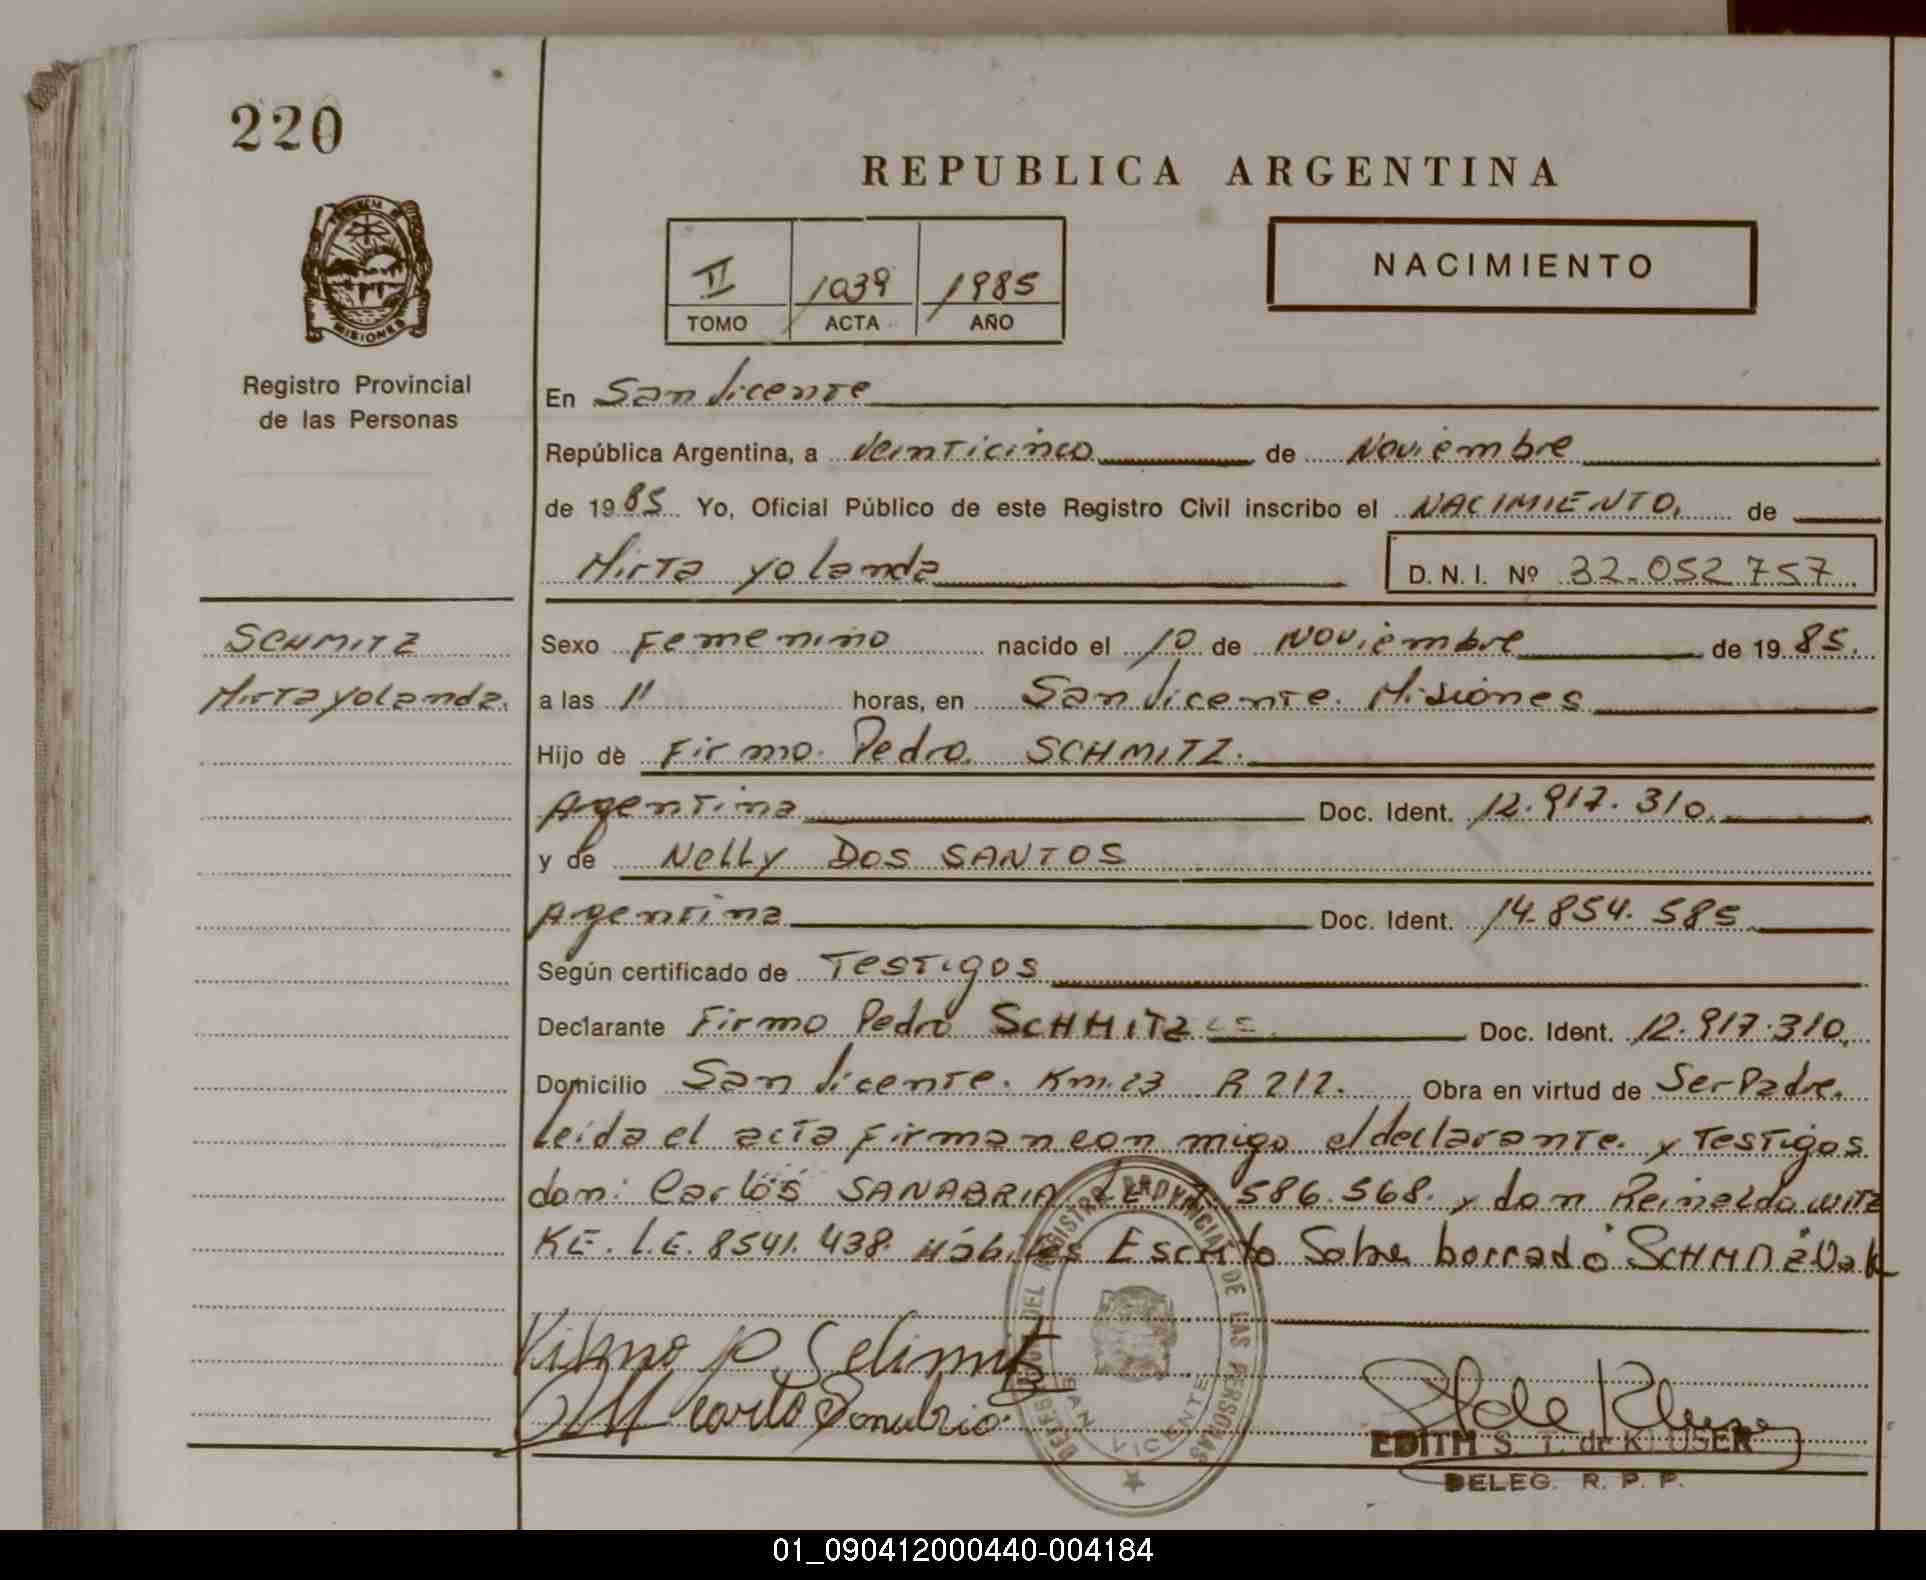 220
REPUBLICA ARGENTINA
NACIMIENTO
II 1039 1985
TOMO ACTA AÑO
MISIONES
Registro Provincial
de las Personas
En San Vicente
República Argentina, a Veinticinco de Noviembre
de 1985 Yo, Oficial Público de este Registro Civil inscribo el NACIMIENTO. de
Mirta Yolanda D. N. I. Nº 32.052.757
SCHMITZ
Mirta Yolanda.
Sexo Femenino nacido el 10 de Noviembre de 1985.
a las 11 horas, en San Vicente. Misiones
Hijo de Firmo Pedro SCHMITZ.
Agentina Doc. Ident. 12.917.310.
y de Nelly DOS SANTOS
Agentina Doc. Ident. 14.854.585
Según certificado de Testigos
Declarante Firmo Pedro SCHMITZ Doc. Ident. 12.917.310.
Domicilio San Vicente. Km. 23 R 212. Obra en virtud de Ser Padre.
Leida el acta Firman con migo el declarante. y Testigos
don: Carlos SANABRIA LE 586.568. y don Reinaldo WITZ
KE. L.E. 8541.438. Hábiles Escrito Sobre borrado "SCHMITZ" Vale
DELEGACION DEL REGISTRO PROVINCIAL DE LAS PERSONAS
SAN VICENTE
EDITH S. T. de KLUSER
DELEG. R. P. P.
01_090412000440-004184